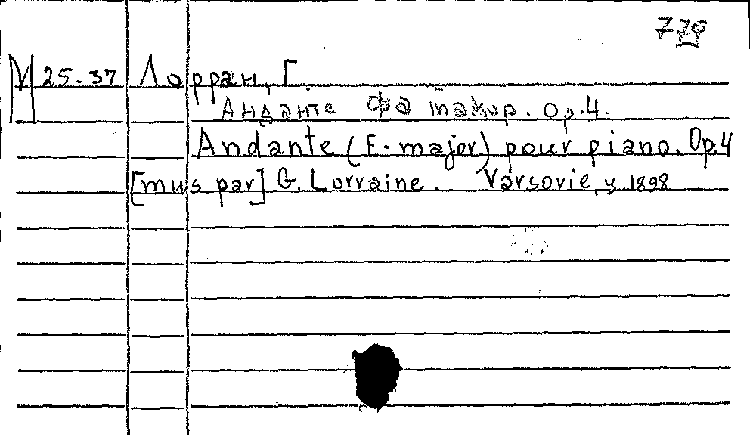 M 25-37 Лорран, Г.
Анданте фа мажор. Op.4.
Andante (F-major) pour piano. Op.4
[mus par] G. Lorraine. Varsovie, 1898